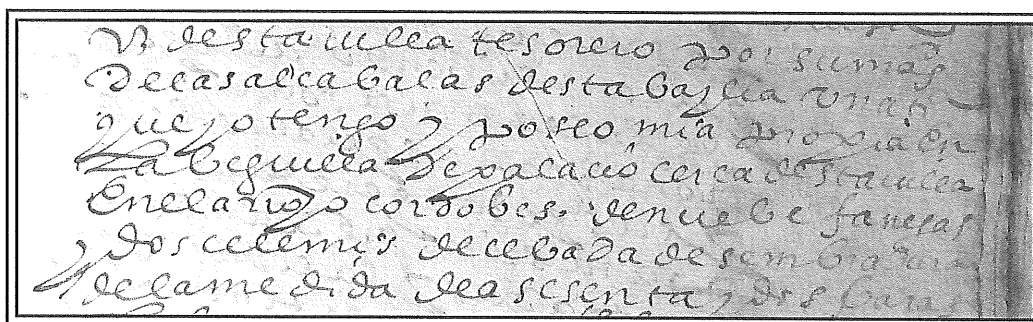 Vº desta uilla tesorero por su mag
de las alcabalas desta baylia vna
que yo tengo y poseo mia propia en
la beguilla de palacio cerca desta uilla
en el arroyo cordobes. de nuebe fanegas
y dos celemis de cebada de sembradura
de la medida de a sesenta y dos